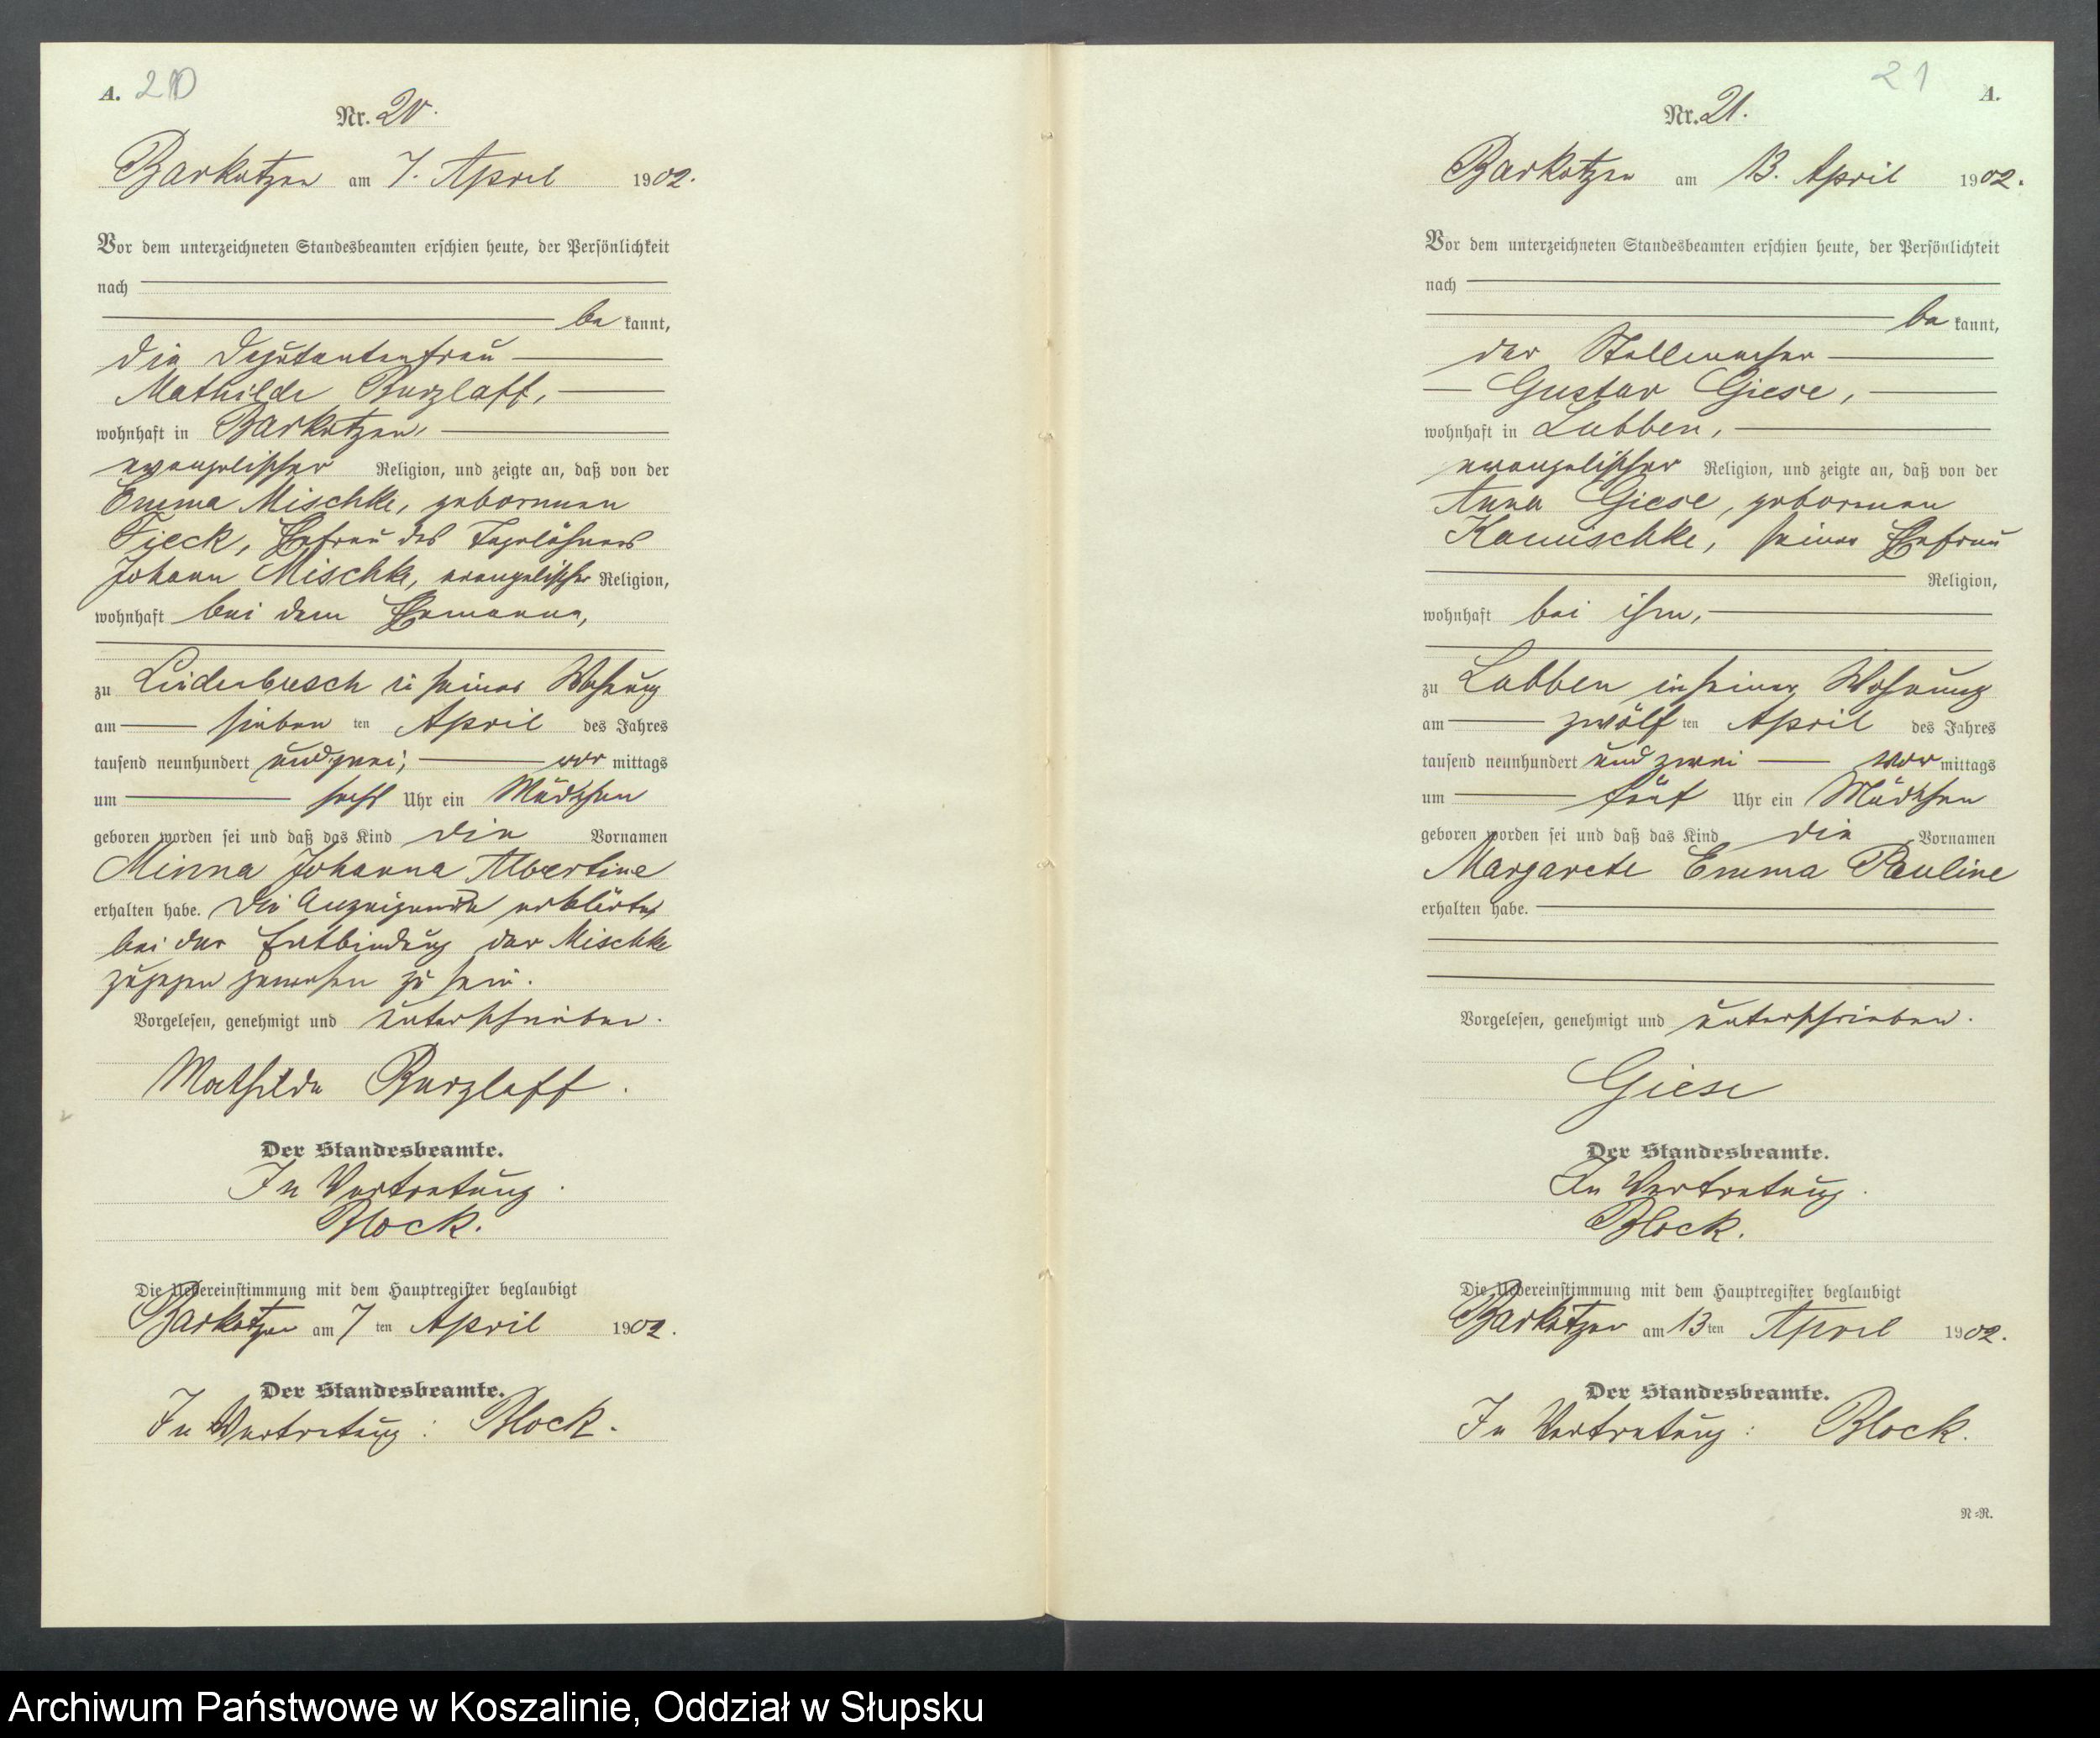 A. 20
Nr. 20.
Barkotzen am 7. April 1902.
Vor dem unterzeichneten Standesbeamten erschien heute, der Persönlichkeit
nach
be kannt,
die Deputantenfrau
Mathilde Burzlaff,
wohnhaft in Barkotzen,
evangelischer Religion, und zeigte an, daß von der
Emma Mischke, gebornenen
Fieck, Ehefrau des Tagelöhners
Johann Mischke, evangelischer Religion,
wohnhaft bei dem Ehemanne,
zu Lindenbusch in seiner Wohnung
am sieben ten April des Jahres
tausend neunhundert und zwei, vor mittags
um sechs Uhr ein Mädchen
geboren worden sei und daß das Kind die Vornamen
Minna Johanna Albertine
erhalten habe. Die Anzeigende erklärte,
bei der Entbindung der Mischke
zugegen gewesen zu sein.
Vorgelesen, genehmigt und unterschrieben.
Mathilde Burzlaff.
Der Standesbeamte.
In Vertretung.
Block.
Die Uebereinstimmung mit dem Hauptregister beglaubigt
Barkotzen am 7 ten April 1902.
Der Standesbeamte.
In Vertretung: Block.
21 A.
Nr. 21.
Barkotzen am 13. April 1902.
Vor dem unterzeichneten Standesbeamten erschien heute, der Persönlichkeit
nach
be kannt,
der Stellmacher
Gustav Giese,
wohnhaft in Labben,
evangelischer Religion, und zeigte an, daß von der
Anna Giese, gebornenen
seiner Ehefrau
Religion,
wohnhaft bei ihm,
zu Labben in seiner Wohnung
am zwölf ten April des Jahres
tausend neunhundert und zwei vor mittags
um fünf Uhr ein Mädchen
geboren worden sei und daß das Kind die Vornamen
Margarete Emma Pauline
erhalten habe.
Vorgelesen, genehmigt und unterschrieben.
Giese
Der Standesbeamte.
In Vertretung.
Block.
Die Uebereinstimmung mit dem Hauptregister beglaubigt
Barkotzen am 13 ten April 1902.
Der Standesbeamte.
In Vertretung: Block.
R=R.
Archiwum Państwowe w Koszalinie, Oddział w Słupsku